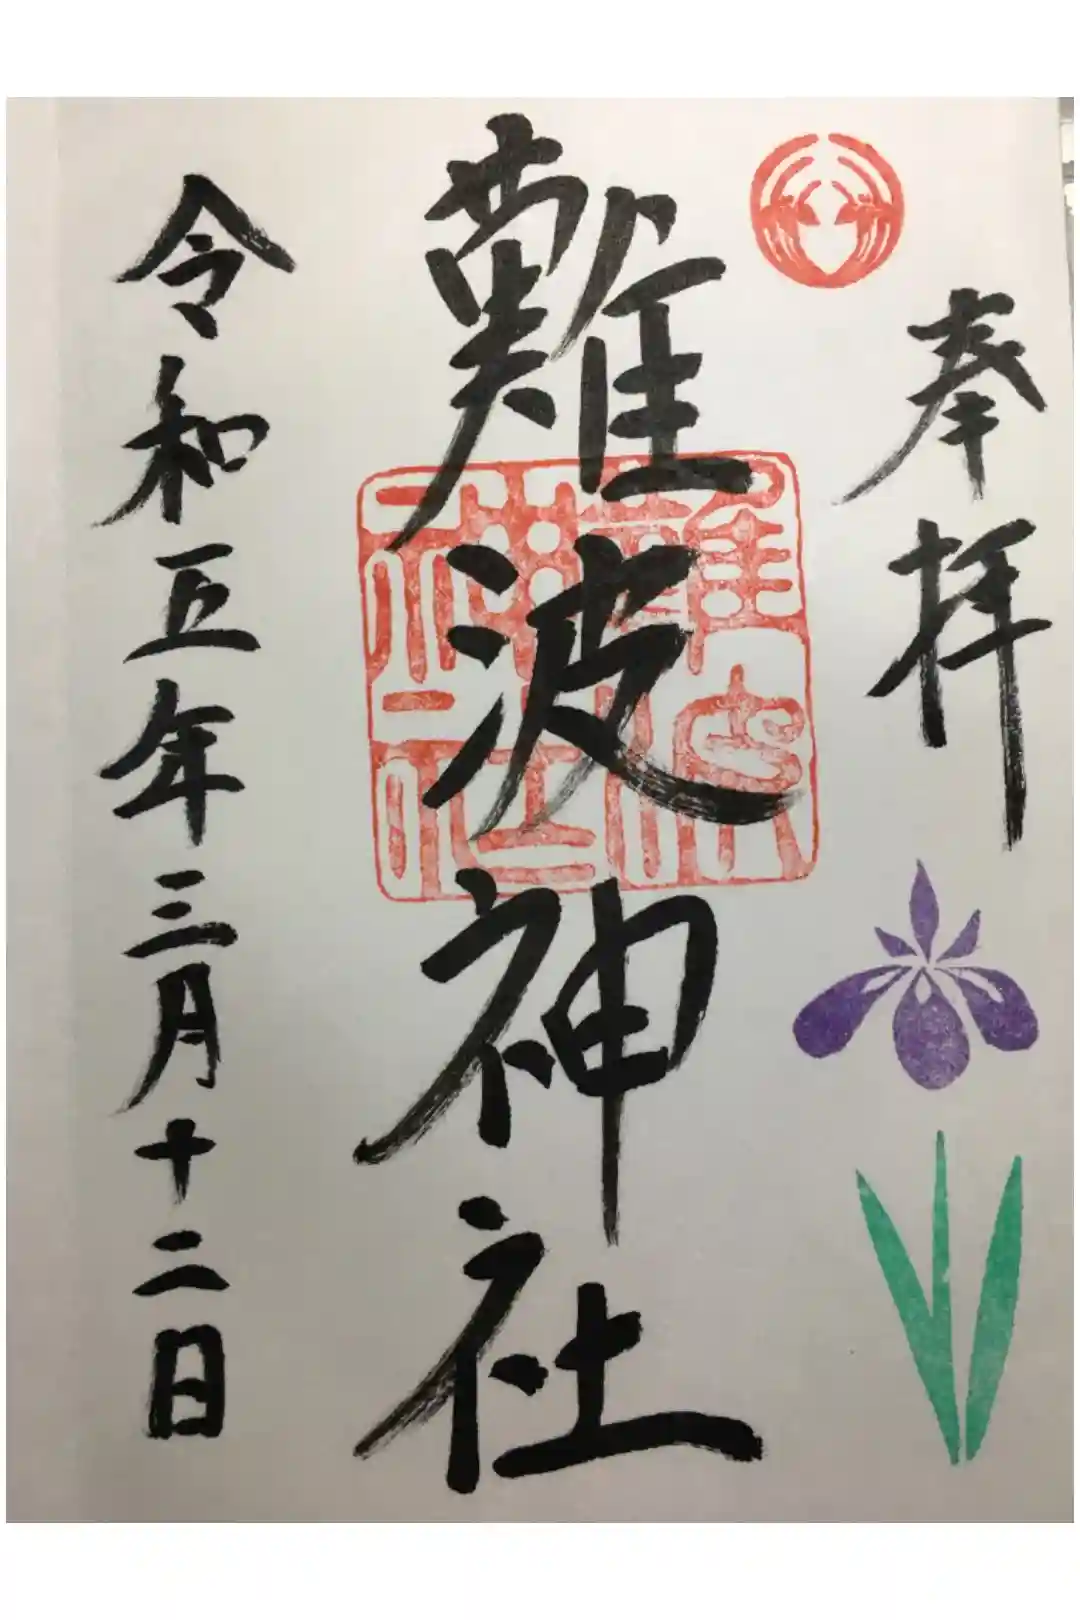 奉拝
難波神社
難波神社
令和五年三月十二日